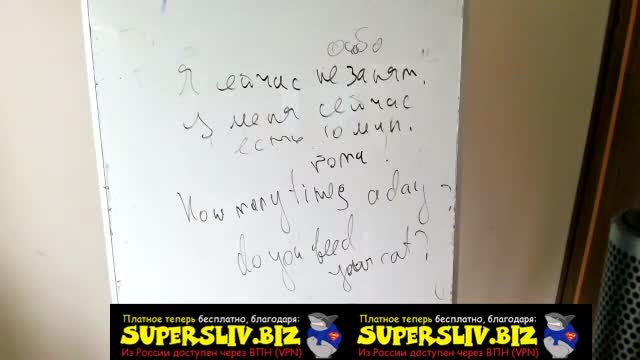 особо
Я сейчас не занят.
У меня сейчас
есть 10 мин.
Рома!
How many times a day ?
do you feed
your cat?
Платное теперь бесплатно, благодаря: Платное теперь бесплатно, благодаря:
SUPERSLIV.BIZ SUPERSLIV.BIZ
Из России доступен через ВПН (VPN) Из России доступен через ВПН (VPN)